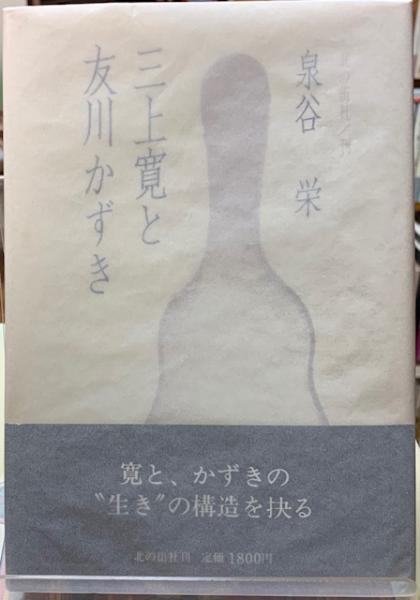 三上寛と
友川かずき
泉谷 栄
北の街社/刊
寛と、かずきの
〝生き〟の構造を抉る
北の街社刊 定価1800円